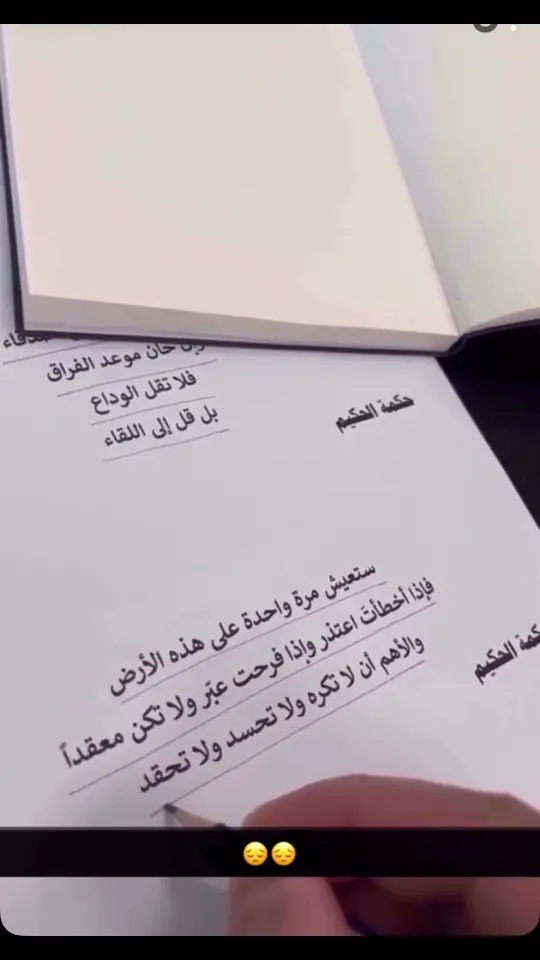 حان موعد الفراق
فلا تقل الوداع
بل قل إلى اللقاء
حكمة الحكيم
ستعيش مرة واحدة على هذه الأرض
فإذا أخطأتَ اعتذر وإذا فرحت عبّر ولا تكن معقداً
والأهم أن لا تكره ولا تحسد ولا تحقد
الحكيم
😔😔